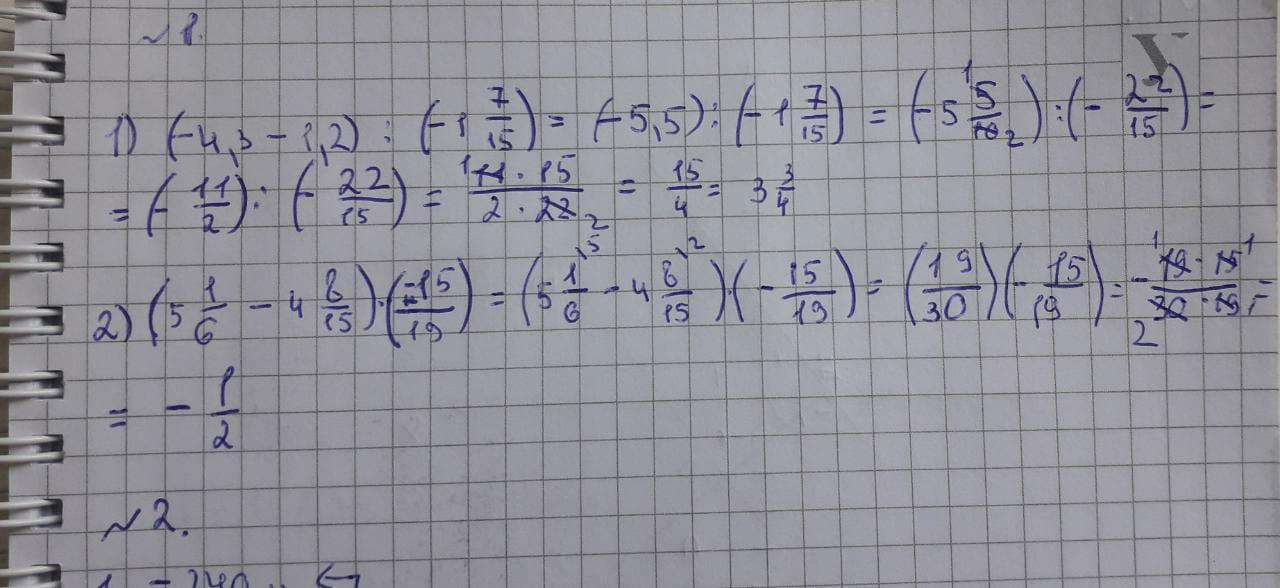 № 1.
1) (-4,3 - 1,2) : (-1 7/15) = (-5,5) : (-1 7/15) = (-5 5/10) : (- 22/15) =
= (- 11/2) : (- 22/15) = 11 · 15 / 2 · 22 = 15/4 = 3 3/4
2) (5 1/6 - 4 8/15) · (-15/19) = (5 1/6 - 4 8/15) · (- 15/19) = (19/30) (- 15/19) = - 19 · 15 / 30 · 19 =
= - 1/2
№ 2.